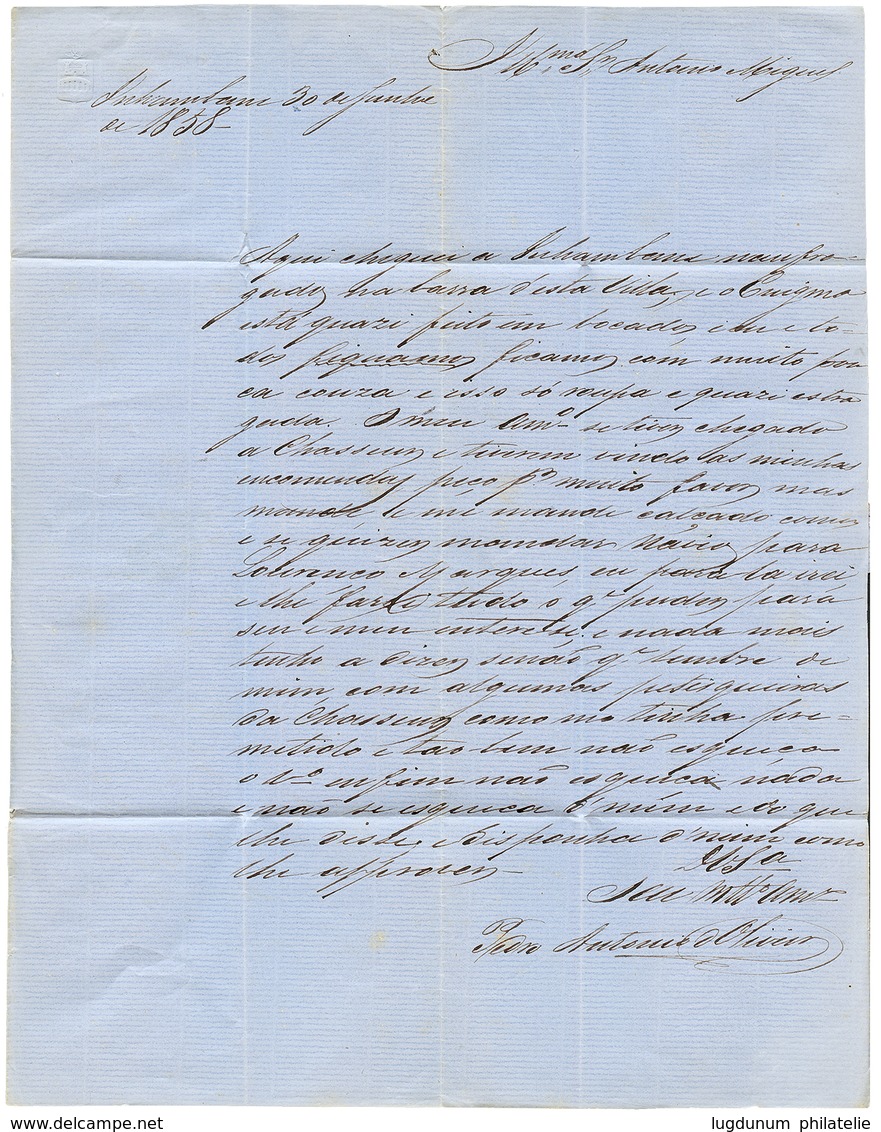 Illmo. Sr. Antonio Miguel
Inhambane 30 de Junho
de 1858
Aqui cheguei a Inhambane naufra-
gados na barra d'esta Villa, e o Enigma
está quazi feito em bocados, e eu e to-
dos fiquamos ficamos com muito pou
ca couza e isso só roupa e quazi estra
gada. O meu Amo. se tiver chegado
a Chasseur e tiverem vindo as minhas
encomendas peço pr. muito favor mas
mande e me mande calçado
e se quizer mandar Navio para
Lourenço Marques, eu para la irei
e lhe farei tudo o q' puder para
seu e meu interesse, e nada mais
tenho a dizer senão q' lembre de
mim com algumas petisqueiras
da Chasseur como me tinha pro-
metido e tao bem não esqueça
o Vo. enfim não esqueça nada
e não se esqueça d'mim e do que
lhe disse, disponha d'mim como
lhe approver
De V Sa
Seu Mtto. Amo.
Pedro Antonio d'Oliveira
lugdunum philatelie
www.delcampe.net